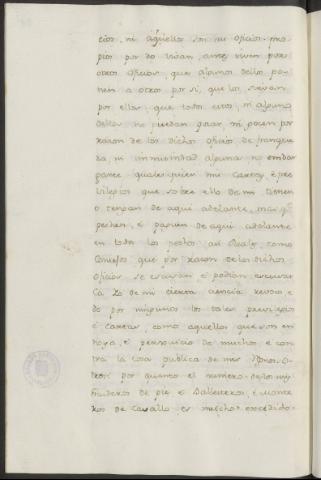 cios, ni aquellos son ni oficios pro
pios por do vivan, antes viven por
otros oficios, que algunos dellos po
nen a otros por si, que los sirvan
por ellos, que todos estos, ni alguno
dellos no puedan gozar, ni gocen por
razon de los dichos oficios de franque
za, ni inmunidad alguna, no embar
gante qualesquier mi cartas, e pre
vilegios que sobre ello de mi tienen
o tengan de aqui adelante, mas qe
pechen, e paguen de aqui adelante
en todos los pechos, asi Reales, como
Concejos que por razon de los dichos
oficios se escusan e podian escusar
Ca Yo de mi cierta ciencia revoco e
do por ningunos los tales previlegios
e cartas, como aquellos que son en
 e perjuicio de muchos, e con
tra la cosa publica de mis Rexnos
 por quanto el numero de los mis
 de pie e Ballesteros, e Monte
ros de Cavallo es mucho excedido